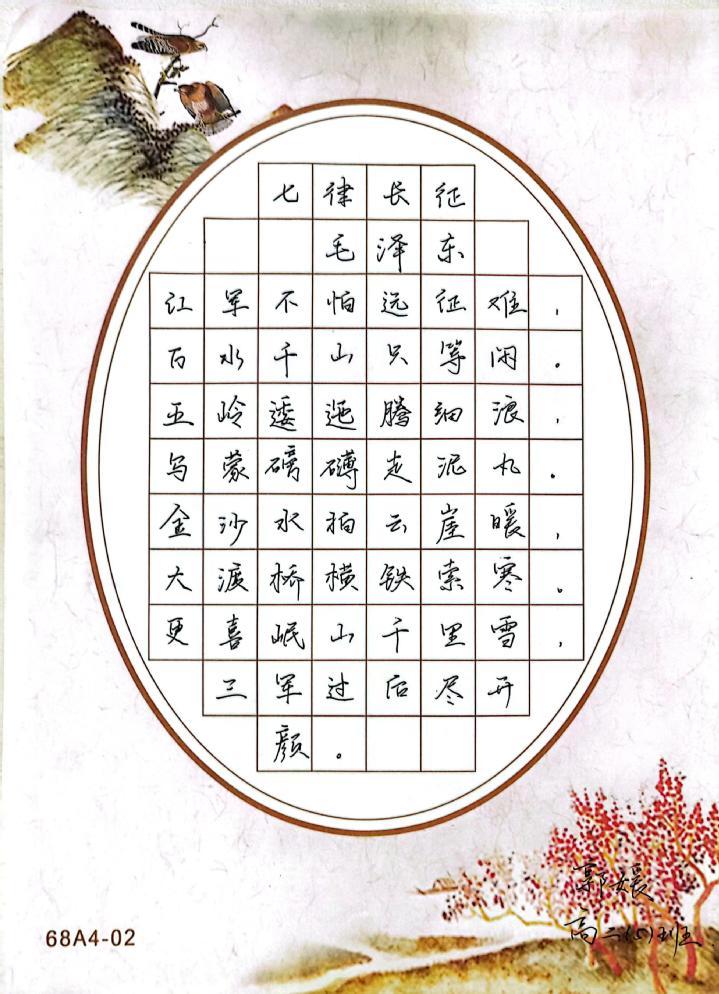 七律长征
毛泽东
红军不怕远征难，
万水千山只等闲。
五岭逶迤腾细浪，
乌蒙磅礴走泥丸。
金沙水拍云崖暖，
大渡桥横铁索寒。
更喜岷山千里雪，
三军过后尽开
颜。
郭媛
高二(5)班
68A4-02